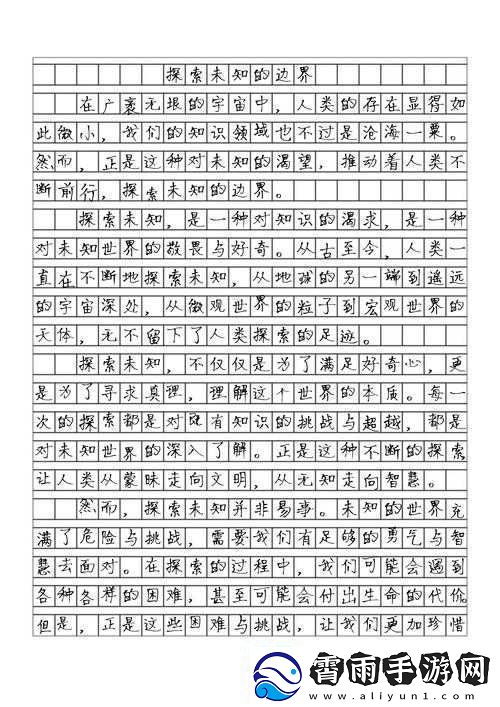 探索未知的边界
在广袤无垠的宇宙中，人类的存在显得如
此微小，我们的知识领域也不过是沧海一粟。
然而，正是这种对未知的渴望，推动着人类不
断前行，探索未知的边界。
探索未知，是一种对知识的渴求，是一种
对未知世界的敬畏与好奇。从古至今，人类一
直在不断地探索未知，从地球的另一端到遥远
的宇宙深处，从微观世界的粒子到宏观世界的
天体，无不留下了人类探索的足迹。
探索未知，不仅仅是为了满足好奇心，更
是为了寻求真理，理解这个世界的本质。每一
次的探索都是对既有知识的挑战与超越，都是
对未知世界的深入了解。正是这种不断的探索，
让人类从蒙昧走向文明，从无知走向智慧。
然而，探索未知并非易事。未知的世界充
满了危险与挑战，需要我们有足够的勇气与智
慧去面对。在探索的过程中，我们可能会遇到
各种各样的困难，甚至可能会付出生命的代价。
但是，正是这些困难与挑战，让我们更加珍惜
霄雨手游网
www.aliyun1.com